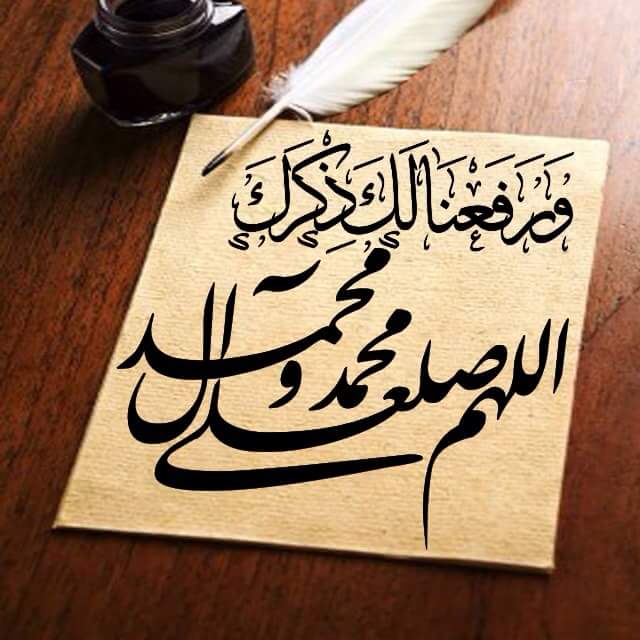 وَرَفَعْنَا لَكَ ذِكْرَكَ
اللهم صل علی محمد و آل محمد